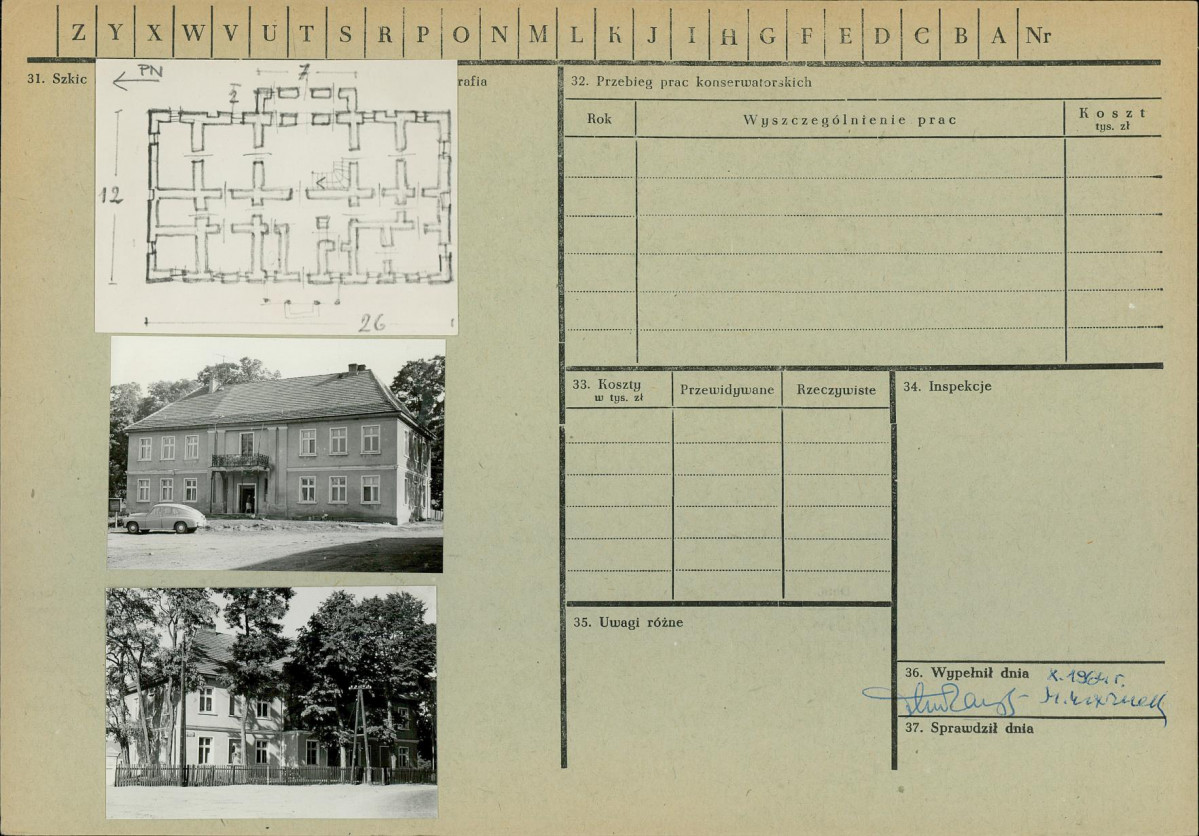 Z Y X W V U T S R P O N M L K J I H G F E D C B A Nr
31. Szkic
rafia
PN
7
2
12
26
32. Przebieg prac konserwatorskich
Rok
Wyszczególnienie prac
Koszt
tys. zł
33. Koszty
w tys. zł
Przewidywane
Rzeczywiste
34. Inspekcje
35. Uwagi różne
36. Wypełnił dnia X.1964 r.
37. Sprawdził dnia